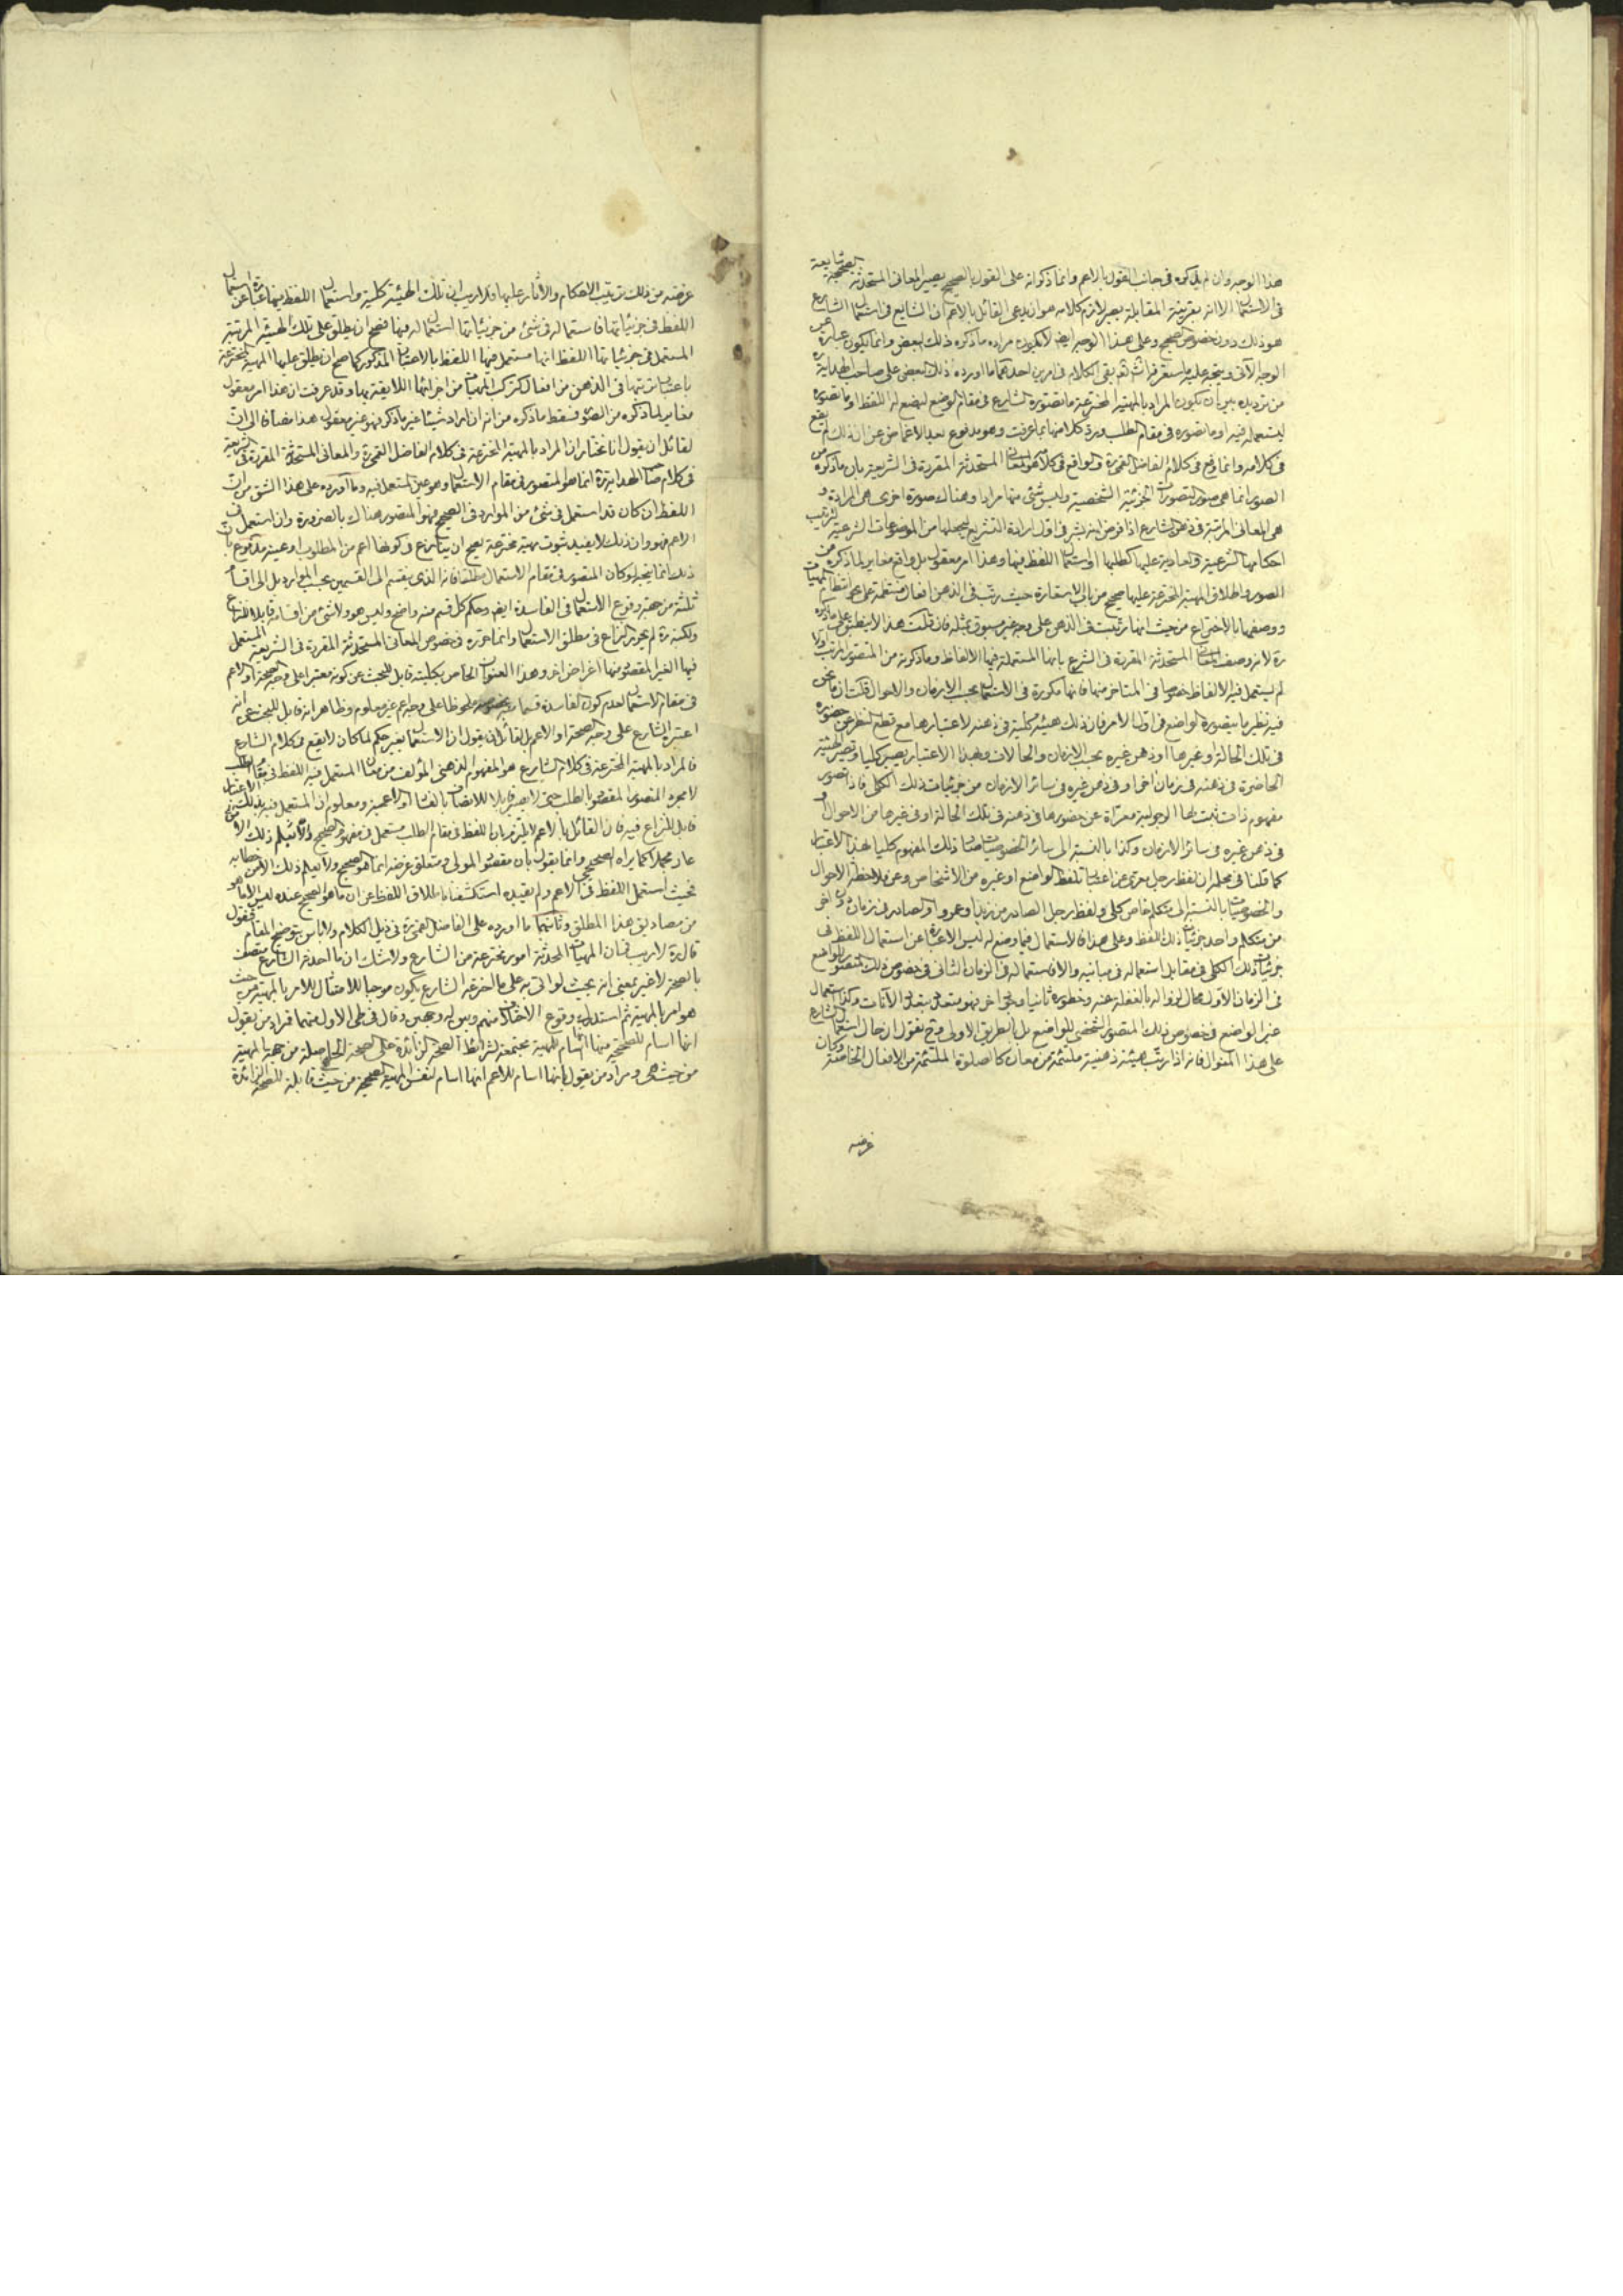 هذا الوجه وان لم يذكره فى جانب القول بالاعم وانما ذكر انه على القول بالصحيح يصير المعانى المستحدثة الصحيحة شايعة
فى الاستعمال الا انه بقرينة المقابلة يصير لازم كلامه هو ان يدعى القائل بالاعم ان الشايع فى استعمال الشارع
هو ذلك دون خصوص الصحيح وعلى هذا الوجه ايضا لا يكون مراده ما ذكره ذلك البعض وانما يكون عبارة عن
الوجه الآتى ويتجه عليه ما ستعرفه ثم بقى الكلام فى امرين احدهما ما اورده ذلك البعض على صاحب الهداية ره
من ترديده بين ان يكون المراد بالمهية المخترعة ما تصوره الشارع فى مقام الوضع ليضع له اللفظ او ما تصوره
ليستعمله فيه او ما تصوره فى مقام الطلب ورد كلا منها بما عرفت وهو مدفوع بعد الاغماض عن ان ذلك لم يقع
فى كلامه وانما وقع فى كلام الفاضل القمى ره والواقع فى كلامه هو المعانى المستحدثة المقررة فى الشريعة بان ما ذكره من
الصور انما هى صور التصورات الجزئية الشخصية وليس شئ منها مرادا وهناك صورة اخرى هى المرادة و
هى المعانى المرتبة فى ذهن الشارع اذا فرض انه بشر فى اول ارادة التشريع ليجعلها من الموضوعات الشرعية لترتيب
احكامها الشرعية والعادية عليها كطلبها او استعمال اللفظ فيها وهذا امر معقول بل واقع مغاير لما ذكره من
الصور واطلاق المهية المخترعة عليها صحيح من باب الاستعارة حيث رتب فى الذهن افعال مشتملة على نحو انتظام المهيات
ووصفها بالاختراع من حيث انها رتبت فى الذهن على وجه غير مسبوق بمثله فان قلت هذا لا ينطبق على ما ذكره
ره لانه وصف المعانى المستحدثة المقررة فى الشرع بانها المستعملة فيها الالفاظ وما ذكرته من المتصور المرتب اولا
لم يستعمل فيه الالفاظ خصوصا فى المتاخر منها فانها مكررة فى الاستعمال بحسب الازمان والاحوال قلت ان ما نحن
فيه نظير ما يتصوره الواضع فى اول الامر فان ذلك هيئة كلية فى ذهنه لاعتبارها مع قطع النظر عن حضوره
فى تلك الحالة او غيرها او ذهن غيره بحسب الازمان والحالات وبهذا الاعتبار يصير كليا وتصير الهيئة
الحاضرة فى ذهنه فى زمان اخر او فى ذهن غيره فى سائر الازمان من جزئيات ذلك الكلى فاذا تصور
مفهوم ذات ثبت لها الرجولية معراة عن حضورها فى ذهنه فى تلك الحالة او فى غيرها من الاحوال و
فى ذهن غيره فى سائر الازمان وكذا بالنسبة الى سائر الخصوصيات صار ذلك المفهوم كليا بهذا الاعتبار
كما قلنا فى محله ان لفظ رجل معرى عن اعتبار تلفظ الواضع او غيره من الاشخاص وعن ملاحظة الاحوال
والخصوصيات بالنسبة الى متكلم خاص كلى ولفظ رجل الصادر من زيد او عمرو او الصادر فى زمان دون اخر
من متكلم واحد جزئيات ذلك اللفظ وعلى هذا فالاستعمال فيما وضع له ليس الا عبارة عن استعمال اللفظ فى
جزئيات ذلك الكلى فى مقابل استعماله فى مباينه والا فاستعماله فى الزمان الثانى فى خصوص ذلك المتصور للواضع
فى الزمان الاول محال لزواله بالغفلة عنه وخطوره ثانيا وجود اخر فهو متعدد بتعدد الآنات وكذا استعمال
غير الواضع فى خصوص ذلك المتصور الشخصى للواضع بل بالطريق الاولى وح نقول ان حال استعمال الشارع
على هذا المنوال فانه اذا رتب هيئة ذهنية ملتئمة من معان كالصلوة الملتئمة من الافعال الخاصة وكان
غرضه
غرضه من ذلك ترتيب الاحكام والآثار عليها فلا ريب ان تلك الهيئة كلية واستعمال اللفظ فيها عبارة عن استعمال
اللفظ فى جزئياتها فاستعماله فى شئ من جزئياتها استعمال له فيها فصح ان يطلق على تلك الهيئة المرتبة
المستعمل فى جزئياتها اللفظ انها مستعمل فيها اللفظ بالاعتبار المذكور كما صح ان يطلق عليها المهية المخترعة
باعتبار ترتبها فى الذهن من افعال كتركب المهيات من اجزائها اللايقة بها وقد عرفت ان هذا امر معقول
مغاير لما ذكره من الصور فسقط ما ذكره من انه ان اراد شيئا غير ما ذكر فهو غير معقول هذا مضافا الى ان
لقائل ان يقول انا نختار ان المراد بالمهية المخترعة فى كلام الفاضل القمى ره والمعانى المستحدثة المقررة فى الشريعة
فى كلام صاحب الهداية ره انما هو المتصور فى مقام الاستعمال وهو عين المستعمل فيه وما اورده على هذا الشق من ان
اللفظ ان كان قد استعمل فى شئ من الموارد فى الصحيح فهو المتصور هناك بالضرورة وان استعمل فى
الاعم فهو وان ذلك لا يفيد ثبوت مهية مخترعة يصح ان يتنازع فى كونها اعم من المطلوب او عينه مدفوع بان
ذلك انما يتجه لو كان المتصور فى مقام الاستعمال مطلقا فانه الذى ينقسم الى القسمين بحسب الموارد بل الى اقسام
ثلثة من جهة وقوع الاستعمال فى الفاسدة ايضا وحكم كل قسم منه واضح وليس هو ولا شئ من اقسامه قابلا للنزاع
ولكنه ره لم يحرر النزاع فى مطلق الاستعمال وانما حرره فى خصوص المعانى المستحدثة المقررة فى الشريعة المستعمل
فيها الغير المقصود منها اغراض اخر وهذا العنوان الخاص بكليته قابل للبحث عن كونه معتبرا على وجه الصحة او الاعم
فى مقام الاستعمال لعدم كون الفاسدة قسما منه بخصوصه ملحوظا على وجه اعم غير معلوم وظاهر انه قابل للبحث عن انه
اعتبره الشارع على وجه الصحة او الاعم بل لقائل ان يقول ان الاستعمال بغير حكم لما كان لا يقع فى كلام الشارع
فالمراد بالمهية المخترعة فى كلام الشارع هو المفهوم الذهنى المؤلف من معان المستعمل فيه اللفظ فى مقام الطلب
لا مجرد المتصور المقصود بالطلب حتى لا يصير قابلا للاتصاف بالفساد او الاعمية ومعلوم ان المستعمل فيه بذلك الاعتبار
قابل للنزاع فيه فان القائل بالاعم لا يلتزم بان اللفظ فى مقام الطلب مستعمل فى مفهوم الصحيح والا فيلزم ذلك الامر
عاد مجملا كما يراه الصحيحى وانما يقول بان مقصود المولى ومتعلق غرضه انما هو الصحيح ولا يعلم ذلك الا من خطابه
فحيث استعمل اللفظ فى الاعم ولم يقيده استكشفنا باطلاق اللفظ عن ان ما هو الصحيح عنده ليس الا ما هو
من مصاديق هذا المطلق وثانيهما ما اورده على الفاضل القمى ره فى ذيل الكلام ولا باس بتوضيح المقام فنقول
قال ره لا ريب فى ان المهيات المحدثة امور مخترعة من الشارع ولا شك ان ما احدثه الشارع متصف
بالصحة لا غير بمعنى انه بحيث لو اتى به على ما اخترعه الشارع يكون موجبا للامتثال للامر بالمهية من حيث
هو امر بالمهية ثم استدل وقوع الاختلاف منهم ومن له وجهين وقال فى طى الاول منهما فمراد من يقول
انها اسام للصحيحة منها انها اسام للمهية مجتمعة لشرائط الصحة الزائدة على الصحة الحاصلة من جهة المهية
من حيث هى ومراد من يقول بانها اسام للاعم انها اسام لنفس المهية الصحيحة من حيث قابلة للصحة الزائدة